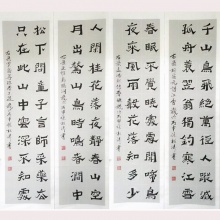 千山鳥飛絕萬徑人蹤滅
孤舟蓑笠翁獨釣寒江雪
春眠不覺曉處處聞啼鳥
夜來風雨聲花落知多少
人閒桂花落夜靜春山空
月出驚山鳥時鳴春澗中
松下問童子言師採藥去
只在此山中雲深不知處